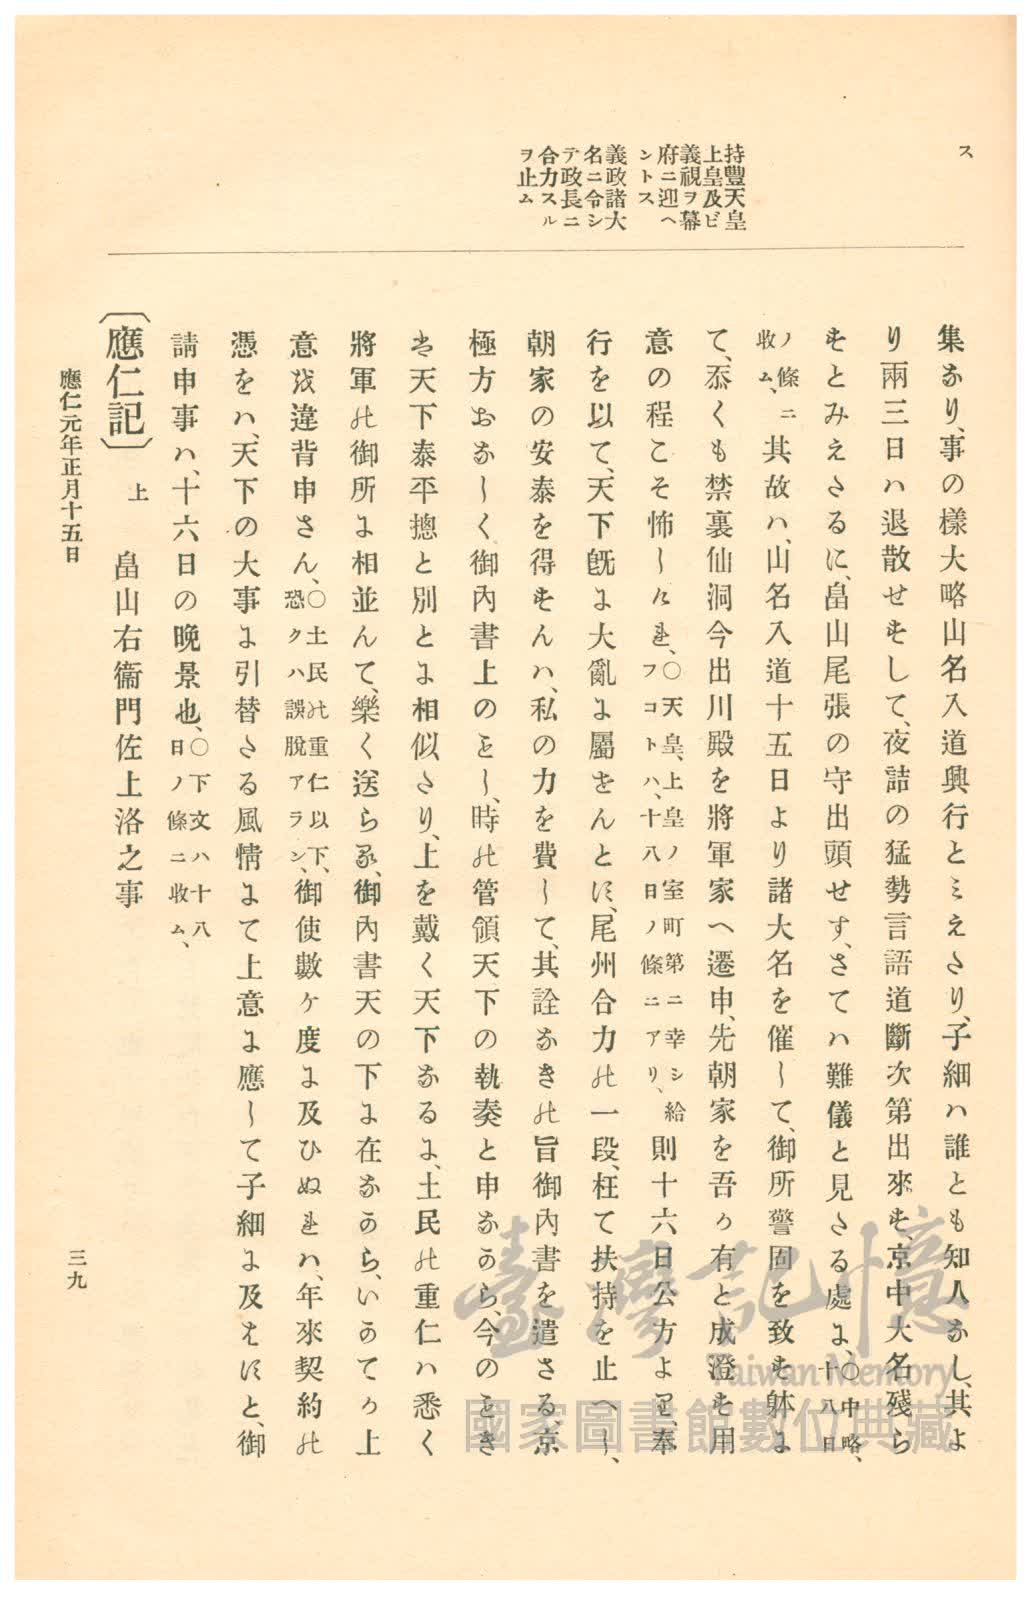 ス
持豐天皇
上皇及ビ
義視ヲ幕
府ニ迎ヘ
ントス
義政諸大
名ニ令シ
テ政長ニ
合力スル
ヲ止ム
集なり、事の樣大略山名入道興行とミえたり、子細ハ誰とも知人なし、其よ
り兩三日ハ退散せすして、夜詰の猛勢言語道斷次第出來す、京中大名殘ら
すとみえさるに、畠山尾張の守出頭せす、さてハ難儀と見たる處に、〇中略、十八日
ノ條ニ收ム、其故ハ、山名入道十五日より諸大名を催して、御所警固を致す躰に
て、忝くも禁裏仙洞今出川殿を將軍家へ遷申、先朝家を吾か有と成澄す用
意の程こそ怖しけれ、〇天皇、上皇ノ室町第ニ幸シ給フコトハ、十八日ノ條ニアリ、則十六日公方より、奉
行を以て、天下旣に大亂に屬せんとに、尾州合力の一段、枉て扶持を止へし、
朝家の安泰を得せんハ、私の力を費して、其詮なきの旨御內書を遣さる、京
極方おなしく御內書上のことし、時の管領天下の執奏と申なから、今のとき
は天下泰平摠と別とに相似たり、上を戴く天下なるに、土民の重仁ハ悉く
將軍の御所に相並んて、樂く送らる、御內書天の下に在なから、いかてか上
意を違背申さん、〇土民の重仁以下、恐クハ誤脫アラン、御使數ケ度に及ひぬれハ、年來契約の
憑をハ、天下の大事に引替たる風情にて上意に應して子細に及はにと、御
請申事ハ、十六日の晚景也、〇下文ハ十八日ノ條ニ收ム、
〔應仁記〕上　畠山右衞門佐上洛之事
應仁元年正月十五日
三九
臺灣記憶
Taiwan Memory
國家圖書館數位典藏